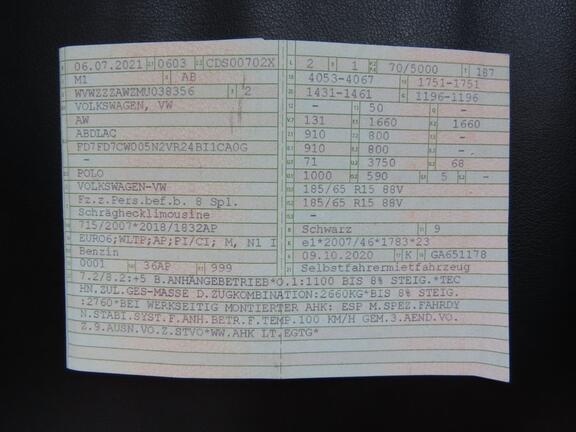 06.07.2021 0603 CDS00702X
M1 AB
WVWZZZAWZMU038356 2
VOLKSWAGEN, VW
AW
ABDLAC
FD7FD7CW005N2VR24BI1CA0G
-
POLO
VOLKSWAGEN-VW
Fz.z.Pers.bef.b. 8 Spl.
Schräghecklimousine
715/2007*2018/1832AP
EURO6;WLTP;AP;PI/CI; M, N1 I
Benzin
0001 36AP 999
2 1 70/5000 187
4053-4067 1751-1751
1431-1461 1196-1196
- 50 -
131 1660 1660
910 800 -
910 800 -
71 3750 68
1000 590 5 -
185/65 R15 88V
185/65 R15 88V
-
Schwarz
e1*2007/46*1783*23
09.10.2020 K GA651178
Selbstfahrermietfahrzeug
7.2/8.2:+5 B.ANHÄNGEBETRIEB*O.1:1100 BIS 8% STEIG.*TEC
HN.ZUL.GES-MASSE D.ZUGKOMBINATION:2660KG*BIS 8% STEIG.
:2760*BEI WERKSEITIG MONTIERTER AHK: ESP M.SPEZ.FAHRDY
N.STABI.SYST.F.ANH.BETR.F.TEMP.100 KM/H GEM.3.AEND.VO.
Z.9.AUSN.VO.Z.STVO*WW.AHK LT.EGTG*